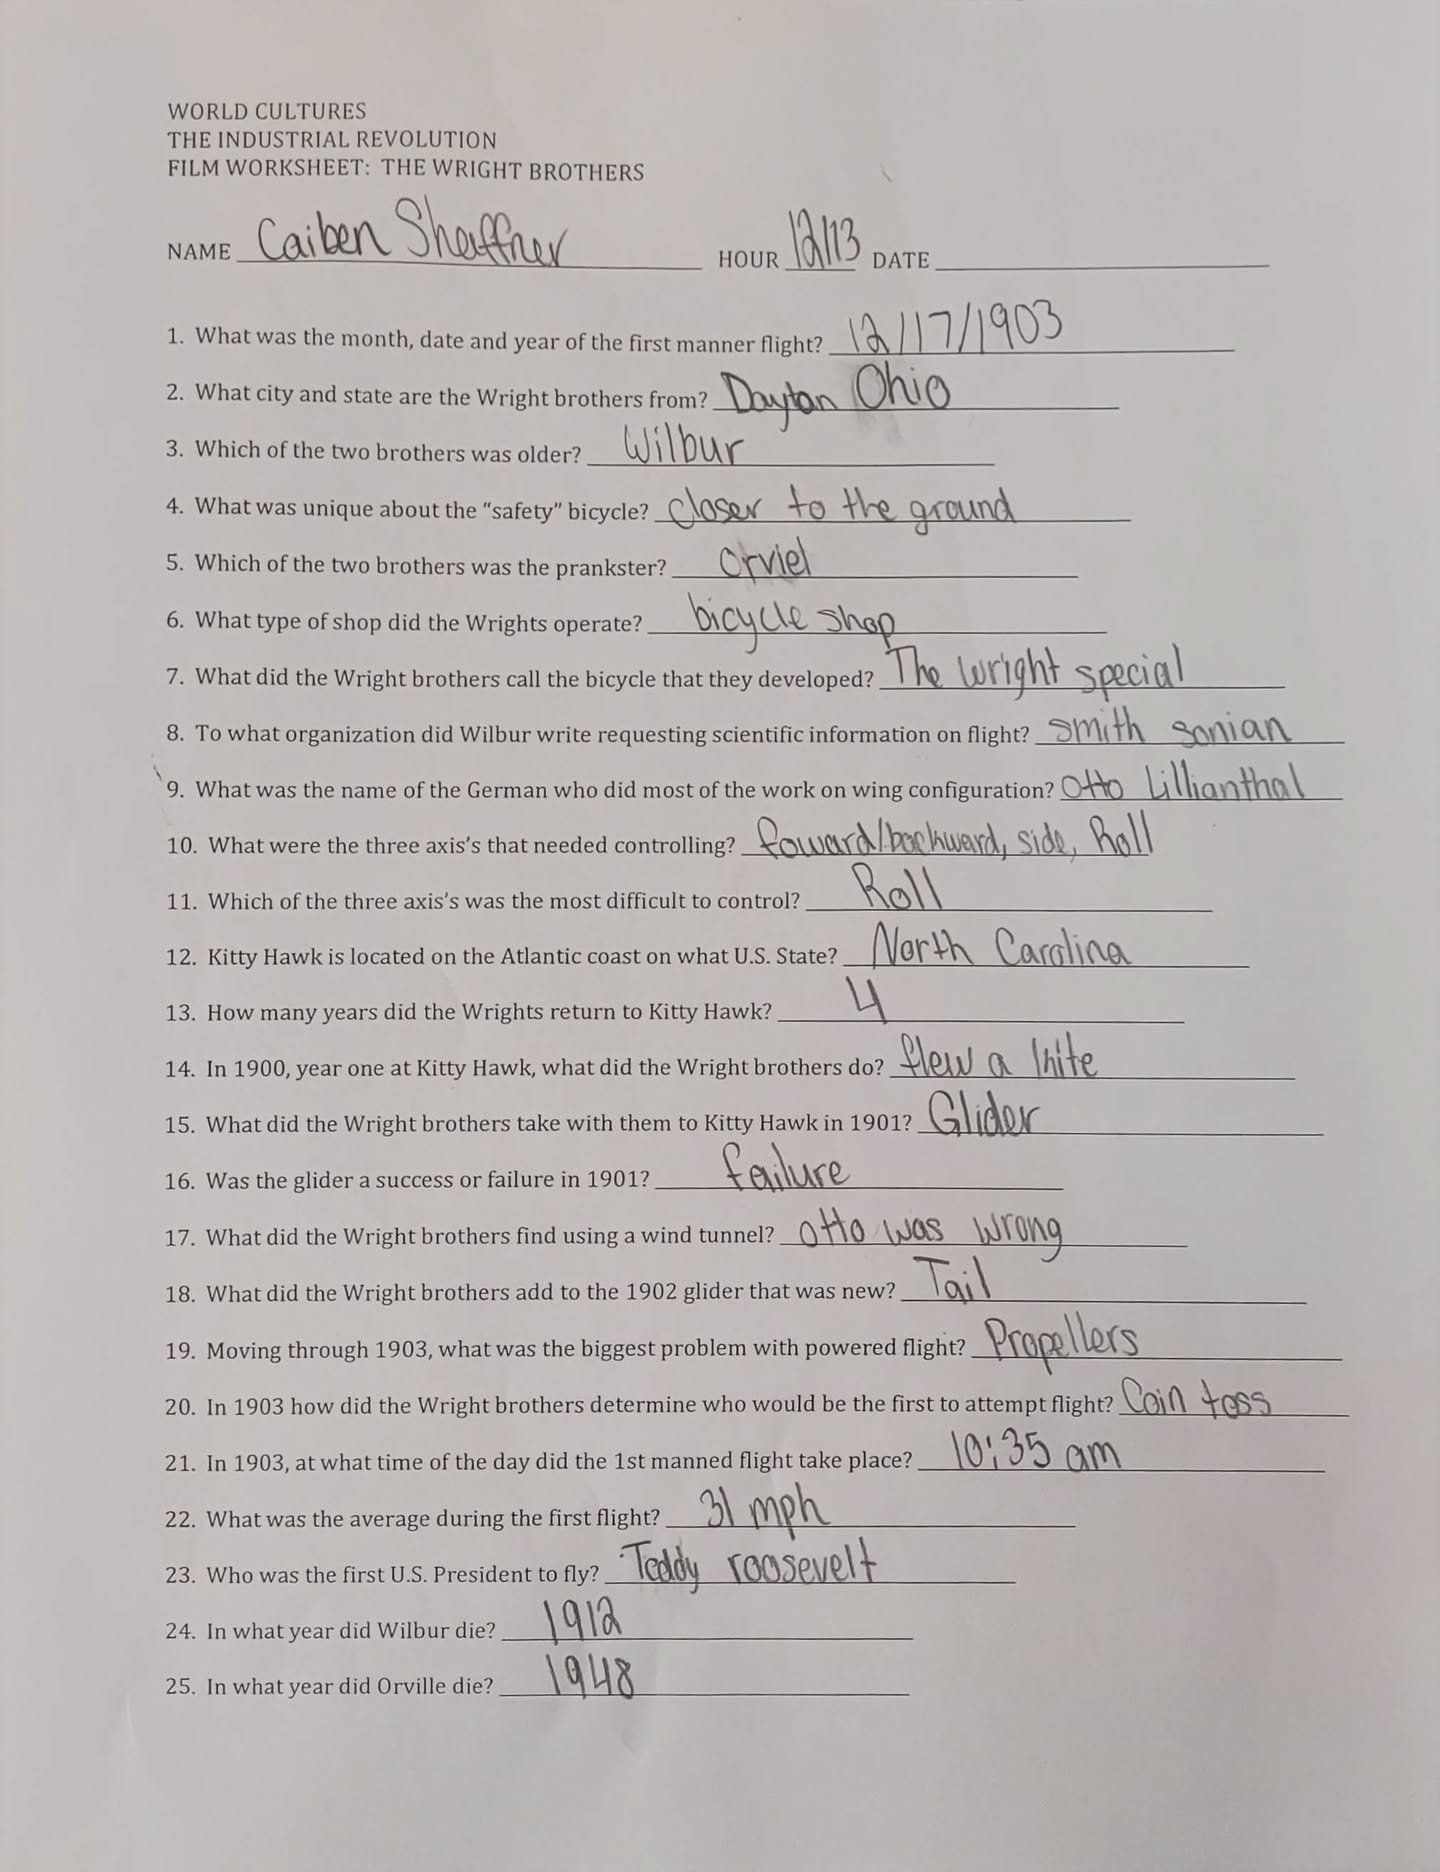 WORLD CULTURES
THE INDUSTRIAL REVOLUTION
FILM WORKSHEET: THE WRIGHT BROTHERS
NAME Caiben Sheffner HOUR 12/13 DATE
1. What was the month, date and year of the first manner flight? 12/17/1903
2. What city and state are the Wright brothers from? Dayton Ohio
3. Which of the two brothers was older? Wilbur
4. What was unique about the “safety” bicycle? closer to the ground
5. Which of the two brothers was the prankster? orviel
6. What type of shop did the Wrights operate? bicycle shop
7. What did the Wright brothers call the bicycle that they developed? The wright special
8. To what organization did Wilbur write requesting scientific information on flight? smith sonian
9. What was the name of the German who did most of the work on wing configuration? Otto Lillianthal
10. What were the three axis’s that needed controlling? foward/backward, side, Roll
11. Which of the three axis’s was the most difficult to control? Roll
12. Kitty Hawk is located on the Atlantic coast on what U.S. State? North Carolina
13. How many years did the Wrights return to Kitty Hawk? 4
14. In 1900, year one at Kitty Hawk, what did the Wright brothers do? flew a kite
15. What did the Wright brothers take with them to Kitty Hawk in 1901? Glider
16. Was the glider a success or failure in 1901? failure
17. What did the Wright brothers find using a wind tunnel? otto was wrong
18. What did the Wright brothers add to the 1902 glider that was new? Tail
19. Moving through 1903, what was the biggest problem with powered flight? Propellers
20. In 1903 how did the Wright brothers determine who would be the first to attempt flight? Coin toss
21. In 1903, at what time of the day did the 1st manned flight take place? 10:35 am
22. What was the average during the first flight? 31 mph
23. Who was the first U.S. President to fly? Teddy roosevelt
24. In what year did Wilbur die? 1912
25. In what year did Orville die? 1948